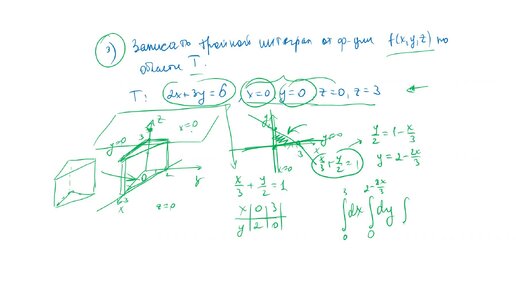 3) Записать тройной интеграл от ф-ции f(x,y,z) по
области T.
T: 2x+3y=6, x=0, y=0, z=0, z=3
z
x=0
y=0
3
2
y
3
x
z=0
y
y=0
2
3
x
x=0
x/3 + y/2 = 1
x/3 + y/2 = 1
x | 0 | 3
y | 2 | 0
y/2 = 1 - x/3
y = 2 - 2x/3
∫₀³ dx ∫₀^(2-2x/3) dy ∫